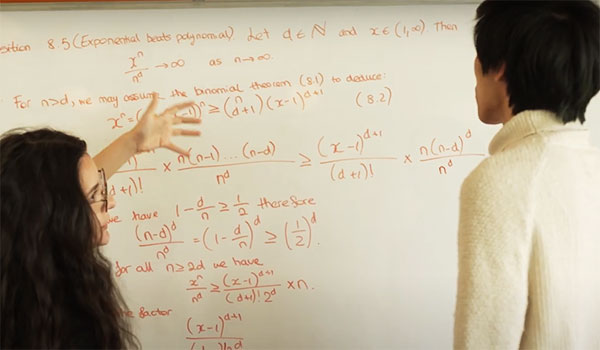 sition 8.5 (Exponential beats polynomial). Let d ∈ ℕ and x ∈ (1,∞). Then
xⁿ/nᵈ → ∞ as n → ∞.
For n>d, we may assume the binomial theorem (8.1) to deduce:
xⁿ = ( -1)ⁿ ≥ (n d+1)(x-1)ᵈ⁺¹ (8.2)
/(d+1)! × n(n-1)...(n-d)/nᵈ ≥ (x-1)ᵈ⁺¹/(d+1)! × n(n-d)ᵈ/nᵈ
we have 1 - d/n ≥ 1/2 therefore
(n-d)ᵈ/nᵈ = (1 - d/n)ᵈ ≥ (1/2)ᵈ.
for all n ≥ 2d we have
xⁿ/nᵈ ≥ (x-1)ᵈ⁺¹/(d+1)! 2ᵈ × n.
the factor
(x-1)ᵈ⁺¹